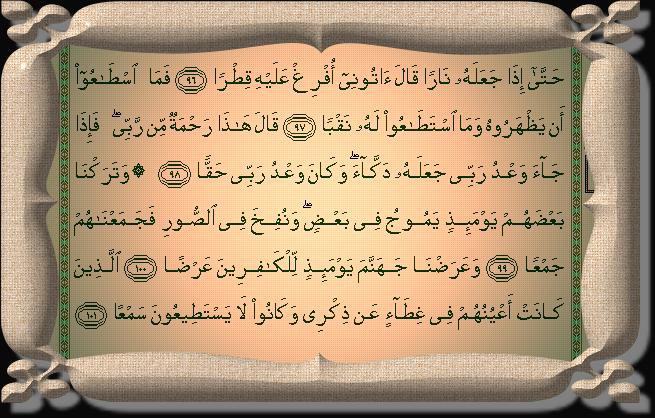 حَتَّىٰٓ إِذَا جَعَلَهُۥ نَارًا قَالَ ءَاتُونِىٓ أُفْرِغْ عَلَيْهِ قِطْرًا ٩٦ فَمَا ٱسْطَـٰعُوٓا۟
أَن يَظْهَرُوهُ وَمَا ٱسْتَطَـٰعُوا۟ لَهُۥ نَقْبًا ٩٧ قَالَ هَـٰذَا رَحْمَةٌ مِّن رَّبِّى ۖ فَإِذَا
جَآءَ وَعْدُ رَبِّى جَعَلَهُۥ دَكَّآءَ ۖ وَكَانَ وَعْدُ رَبِّى حَقًّا ٩٨ ۞ وَتَرَكْنَا
بَعْضَهُمْ يَوْمَئِذٍ يَمُوجُ فِى بَعْضٍ ۖ وَنُفِخَ فِى ٱلصُّورِ فَجَمَعْنَـٰهُمْ
جَمْعًا ٩٩ وَعَرَضْنَا جَهَنَّمَ يَوْمَئِذٍ لِّلْكَـٰفِرِينَ عَرْضًا ١٠٠ ٱلَّذِينَ
كَانَتْ أَعْيُنُهُمْ فِى غِطَآءٍ عَن ذِكْرِى وَكَانُوا۟ لَا يَسْتَطِيعُونَ سَمْعًا ١٠١